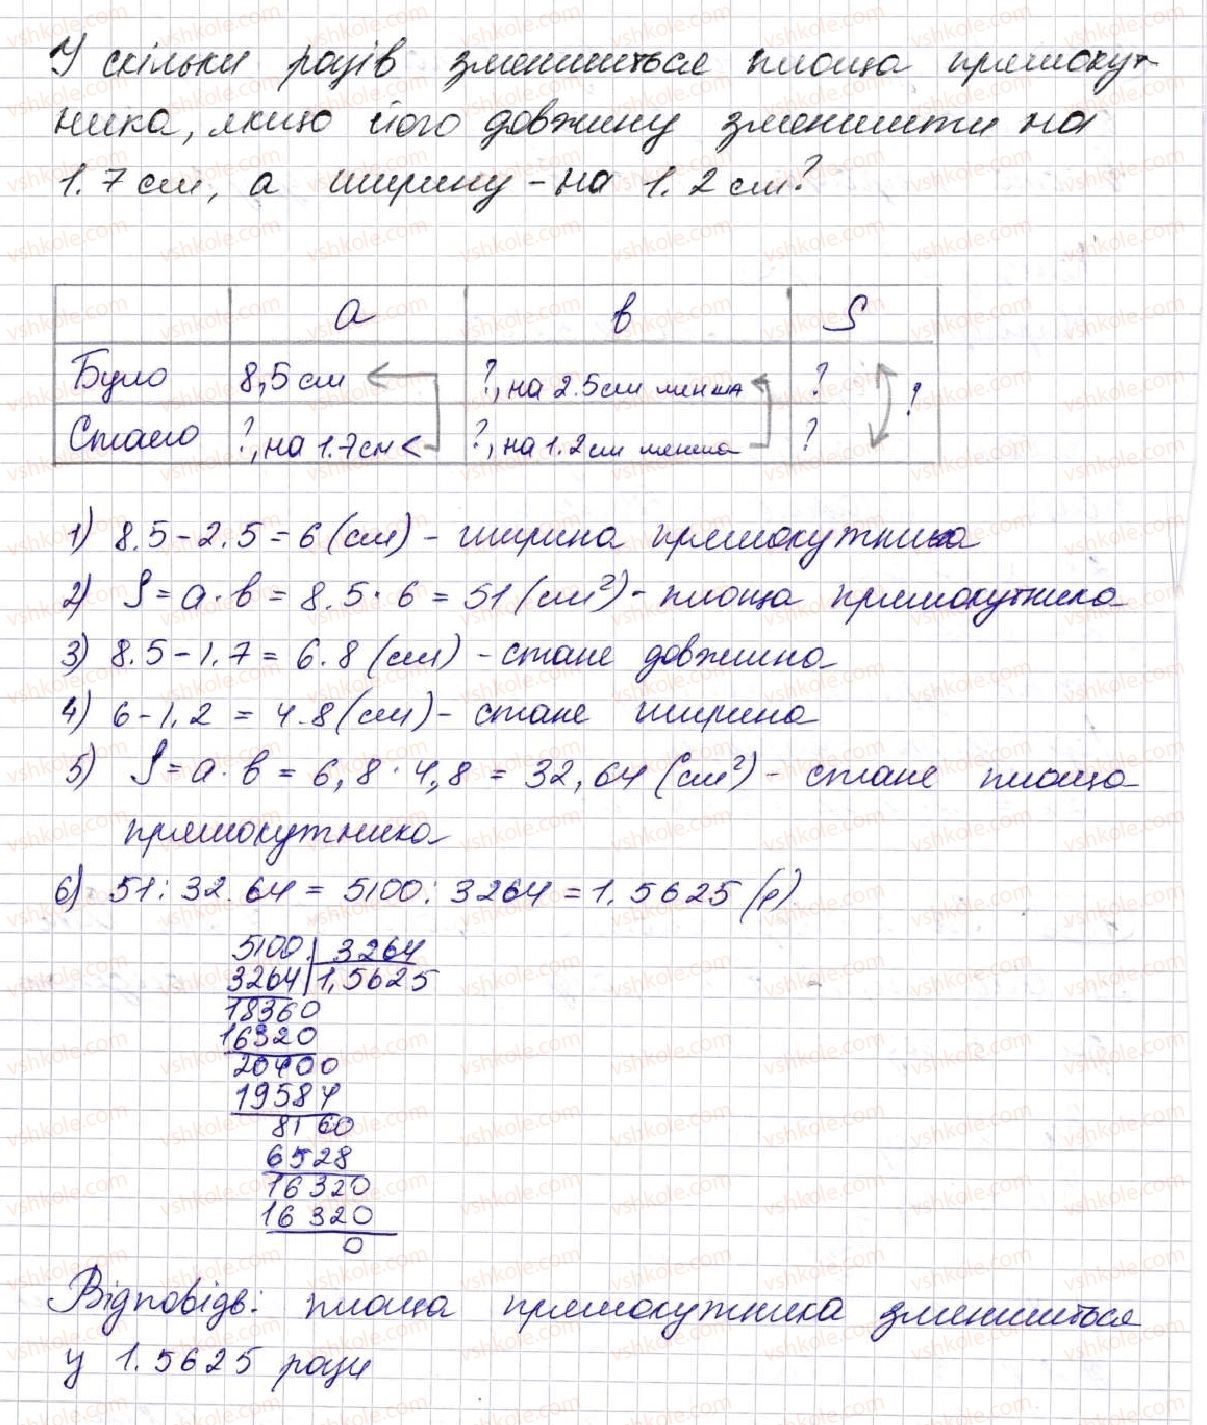 У скільки разів зменшиться площа прямокут-
ника, якщо його довжину зменшити на
1.7 см, а ширину - на 1.2 см?
a b S
Було 8,5 см ?, на 2.5 см менша ? ?
Стало ?, на 1.7 см < ?, на 1.2 см менша ?
1) 8.5 - 2.5 = 6 (см) - ширина прямокутника
2) S = a · b = 8.5 · 6 = 51 (см²) - площа прямокутника
3) 8.5 - 1.7 = 6.8 (см) - стане довжина
4) 6 - 1.2 = 4.8 (см) - стане ширина
5) S = a · b = 6,8 · 4,8 = 32,64 (см²) - стане площа
прямокутника
6) 51 : 32.64 = 5100 : 3264 = 1.5625 (р)
5100 3264
3264 1,5625
18360
16320
20400
19584
8160
6528
16320
16320
0
Відповідь: площа прямокутника зменшиться
у 1.5625 рази